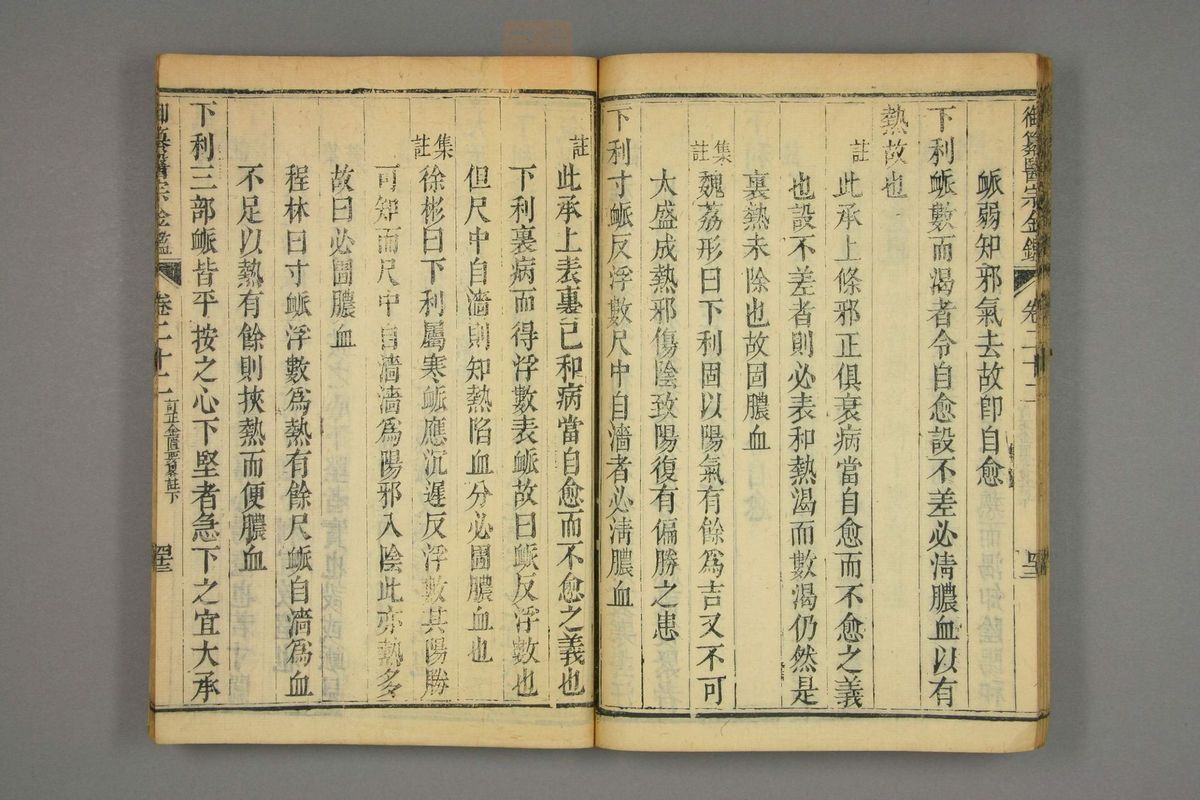 御纂醫宗金鑑 卷二十二
脈弱知邪氣去故卽自愈
下利脈數而渴者令自愈設不差必淸膿血以有
熱故也
註
此承上條邪正俱衰病當自愈而不愈之義
也設不差者則必表和熱渴而數渴仍然是
裏熱未除也故圊膿血
集註
魏荔彤曰下利固以陽氣有餘為吉又不可
太盛成熱邪傷陰致陽復有偏勝之患
下利寸脈反浮數尺中自濇者必淸膿血
註
此承上表裏已和病當自愈而不愈之義也
下利裏病而得浮數表脈故曰脈反浮數也
但尺中自濇則知熱陷血分必圊膿血也
集註
徐彬曰下利屬寒脈應沉遲反浮數其陽勝
可知而尺中自濇濇為陽邪入陰此亦熱多
故曰必圊膿血
程林曰寸脈浮數為熱有餘尺脈自濇為血
不足以熱有餘則挾熱而便膿血
下利三部脈皆平按之心下堅者急下之宜大承
御纂醫宗金鑑 卷二十二 訂正金匱要畧註下